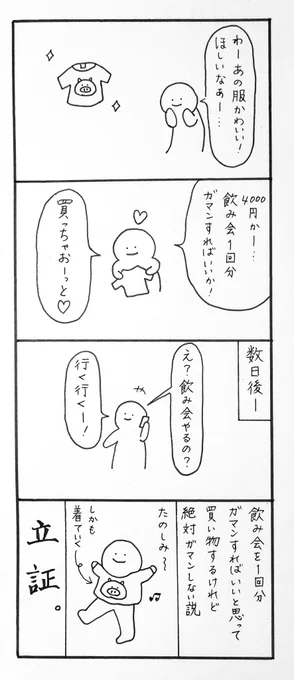 わーあの服かわいい！
ほしいなぁー…
4000円かー…
飲み会1回分
ガマンすればいいか！
買っちゃおーっと♡
数日後ー
え？飲み会やるの？
行く行くー！
飲み会を1回分
ガマンすればいいと思って
買い物するけれど
絶対ガマンしない説
たのしみ〜
しかも
着ていく
立証。